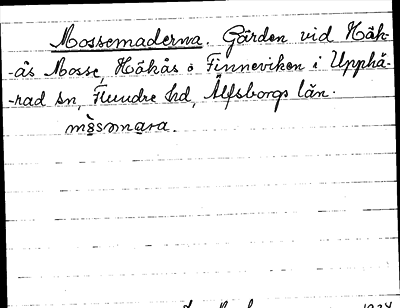 Mossemaderna. Gärden vid Håk-
-ås Mosse, Håkås o Finneviken i Upphä-
-rad sn, Flundre hd, Älfsborgs län.
mòsəmara.
1924